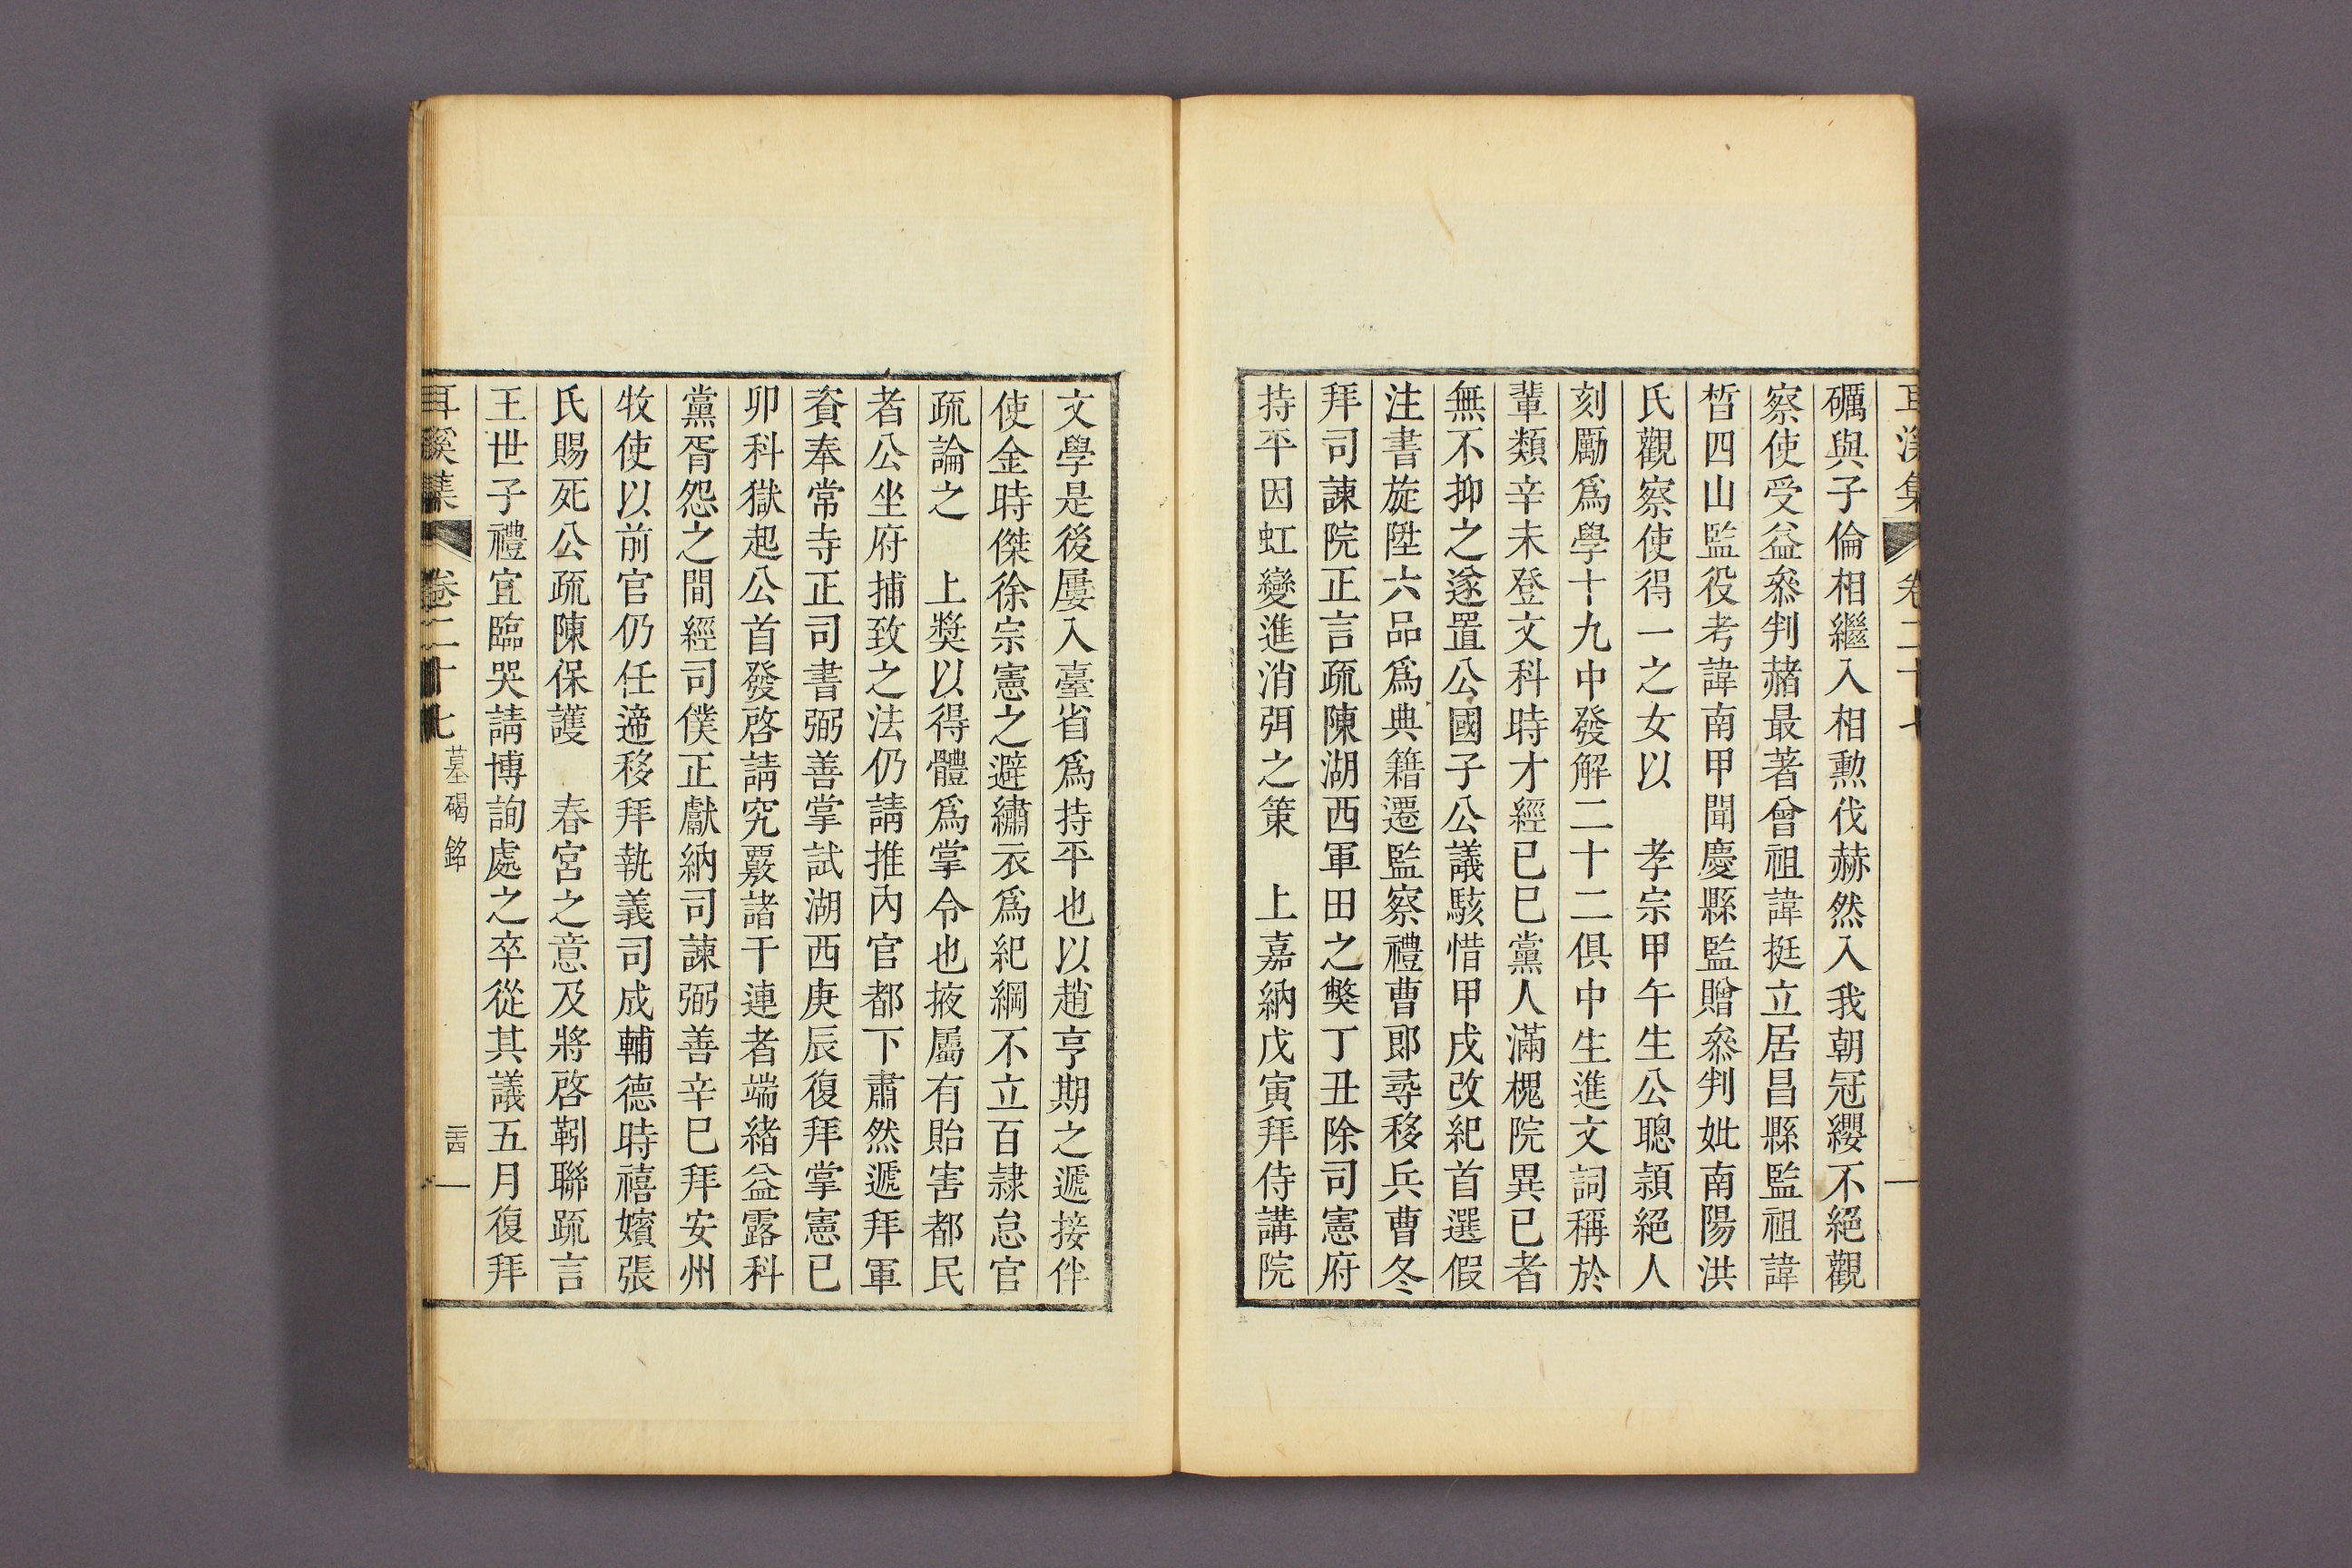 耳溪集 卷二十七
礪與子倫相繼入相勲伐赫然入我朝冠纓不絕觀
察使受益叅判赭最著曾祖諱挺立居昌縣監祖諱
晳四山監役考諱南甲聞慶縣監贈叅判妣南陽洪
氏觀察使得一之女以 孝宗甲午生公聰頴絕人
刻勵爲學十九中發解二十二俱中生進文詞稱於
輩類辛未登文科時才經已巳黨人滿槐院異已者
無不抑之遂置公國子公議駭惜甲戌改紀首選假
注書旋陞六品爲典籍遷監察禮曹郎尋移兵曹冬
拜司諫院正言疏陳湖西軍田之獘丁丑除司憲府
持平因虹變進消弭之策 上嘉納戊寅拜侍講院
文學是後屢入臺省爲持平也以趙亨期之遞接伴
使金時傑徐宗憲之避繡衣爲紀綱不立百隷怠官
疏論之 上奬以得體爲掌令也掖屬有貽害都民
者公坐府捕致之法仍請推內官都下肅然遞拜軍
資奉常寺正司書弼善掌試湖西庚辰復拜掌憲已
卯科獄起公首發啓請究覈諸干連者端緖益露科
黨胥怨之間經司僕正獻納司諫弼善辛巳拜安州
牧使以前官仍任遞移拜執義司成輔德時禧嬪張
氏賜死公疏陳保護 春宮之意及將啓靷聯疏言
王世子禮宜臨哭請博詢處之卒從其議五月復拜
耳溪集 卷二十七 墓碣銘 二十四